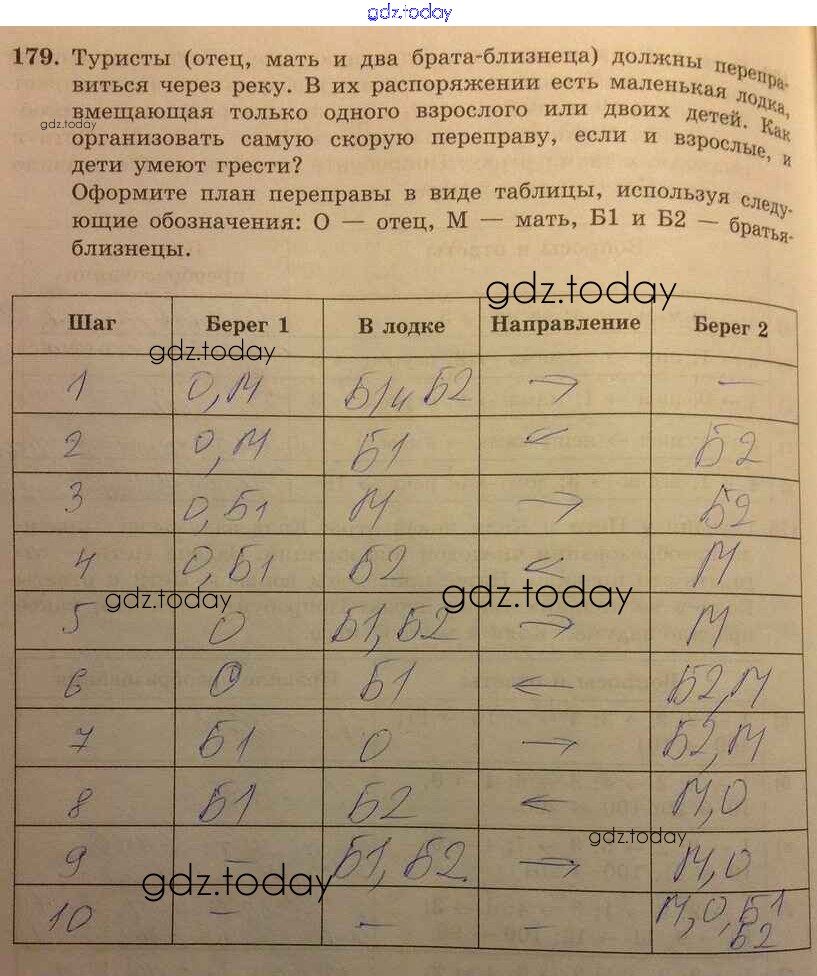 gdz.today
179. Туристы (отец, мать и два брата-близнеца) должны перепра-
виться через реку. В их распоряжении есть маленькая лодка,
вмещающая только одного взрослого или двоих детей. Как
gdz.today
организовать самую скорую переправу, если и взрослые, и
дети умеют грести?
Оформите план переправы в виде таблицы, используя следу-
ющие обозначения: О — отец, М — мать, Б1 и Б2 — братья-
близнецы.
gdz.today
Шаг Берег 1 В лодке Направление Берег 2
gdz.today
1 О, М Б1 и Б2 → —
2 О, М Б1 ← Б2
3 О, Б1 М → Б2
4 О, Б1 Б2 ← М
gdz.today gdz.today
5 О Б1, Б2 → М
6 О Б1 ← Б2, М
7 Б1 О → Б2, М
8 Б1 Б2 ← М, О
gdz.today
9 — Б1, Б2 → М, О
gdz.today
10 — — — М, О, Б1
Б2